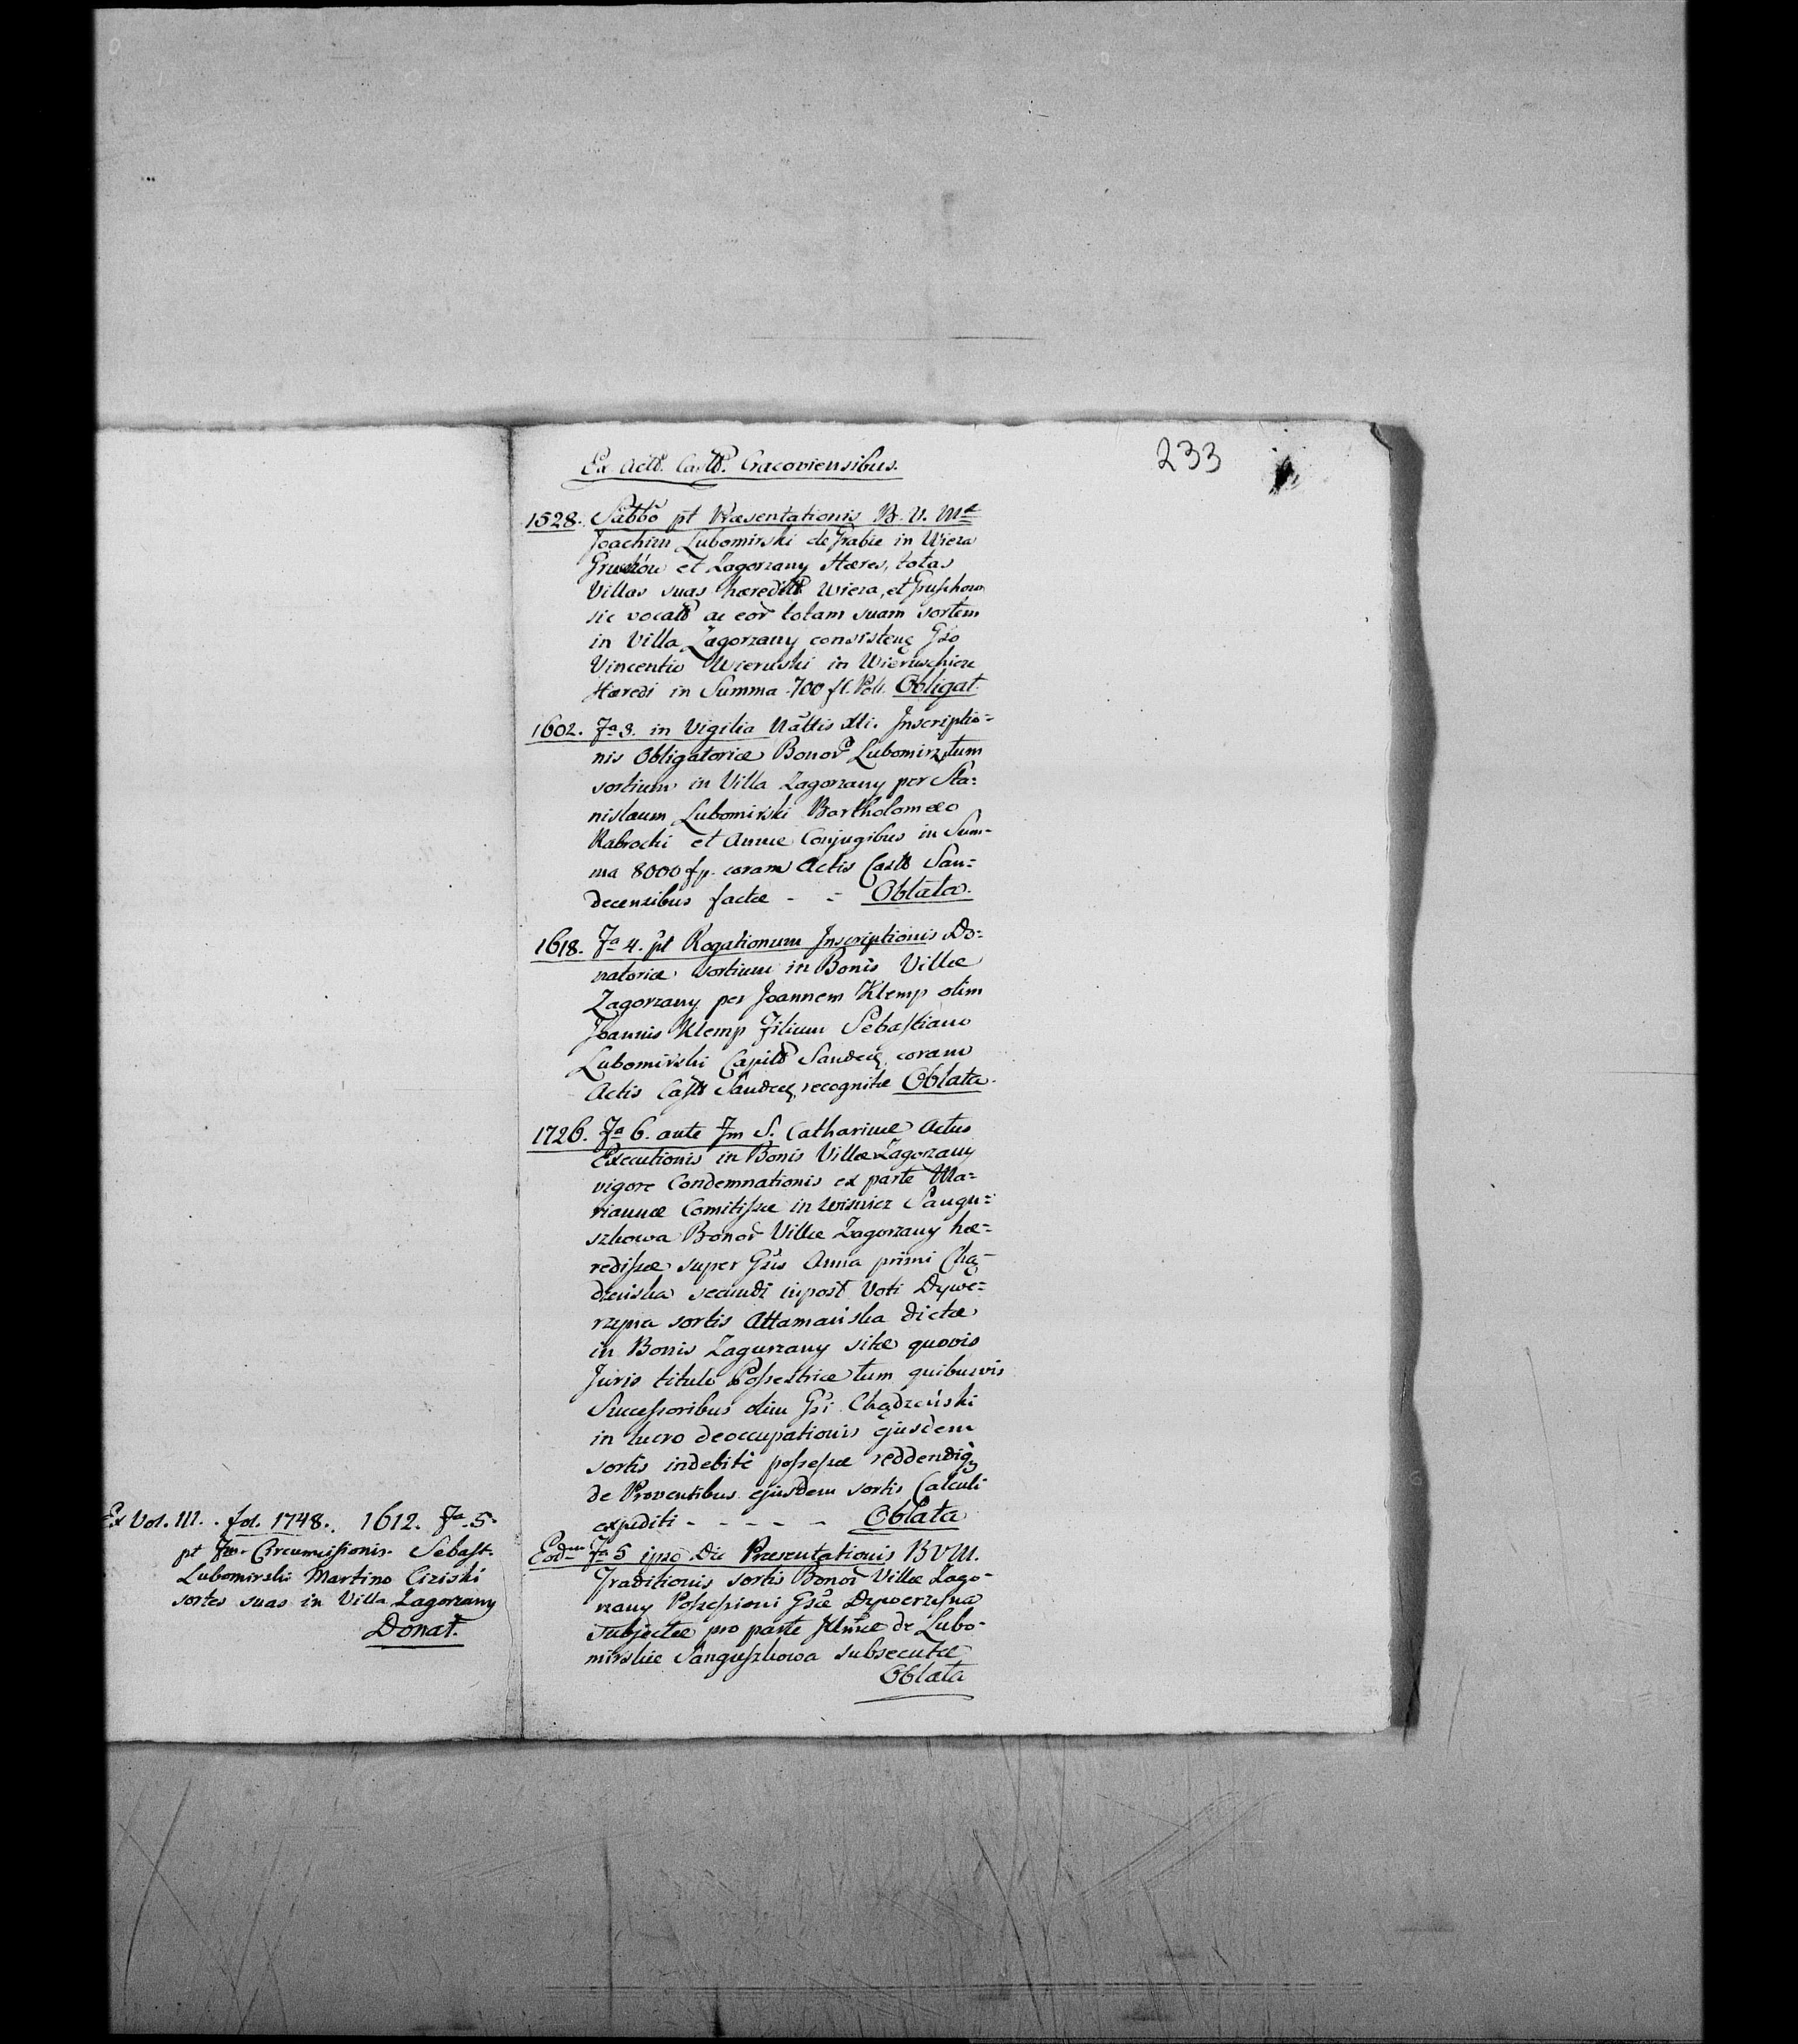 233
Ex Actis Castr. Cracoviensibus.
1528. Sabbo pt Præsentationis B. V. Mæ
Joachim Lubomirski de Grabie in Wiera
Gruszów et Zagorzany Hæres, totas
Villas suas hæredit. Wiera, et Gruschow
sic vocat. ac eor totam suam sortem
in Villa Zagorzany consistenę Gso
Vincentio Wieruski in Wieruschicze
Hæredi in Summa 700 fl. Pol. Obligat.
1602. Fa 3. in Vigilia Nattis Xti. Inscriptio=
nis Obligatoriæ Bonor Lubomirz, tum
sortium in Villa Zagorzany per Sta=
nislaum Lubomirski Bartholomæo
Rabrocki et Annæ Conjugibus in Sum=
ma 8000 fp. coram Actis Castr San=
decensibus factæ - = Oblata.
1618. Fa 4. pt Rogationum Inscriptionis Do=
natoriæ sortium in Bonis Villæ
Zagorzany per Joannem Klemp olim
Joannis Klemp Filium Sebastiano
Lubomirski Capit Sandecę coram
Actis Castr Sandecę recognitæ Oblata.
1726. Fa 6. ante Fm S. Catharinæ Actus
Executionis in Bonis Villæ Zagorzany
vigore Condemnationis ex parte Ma=
riannæ Comitissæ in Wisnicz Sangu=
szkowa Bonor Villæ Zagorzany hæ=
redissæ super Gsis Anna primi Chą=
dzeńska secundi inpost Voti Dywe=
rzyna sortis Attamańska dictæ
in Bonis Zagurzany sitæ quovis
Juris titulo Possestrice tum quibusvis
Successoribus olim Gsi Chądzeński
in lucro deoccupationis ejusdem
sortis indebitè possessæ reddendiq,
de Proventibus ejusdem sortis Calculi
expediti - - - - - Oblata
Eodm Fa 5 ipso Die Præsentationis BVM.
Traditionis sortis Bonor Villæ Zago=
rzany Possessioni Gsæ Dywerzyna
subjectæ pro parte Illmæ de Lubo=
mirskie Sanguszkowa subsecutæ
Oblata
Ex Vol. III. fol. 1748. 1612. Fa 5.
pt Fm Circumcissionis Sebast.
Lubomirski Martino Ciziski
sortes suas in Villa Zagorzany
Donat.